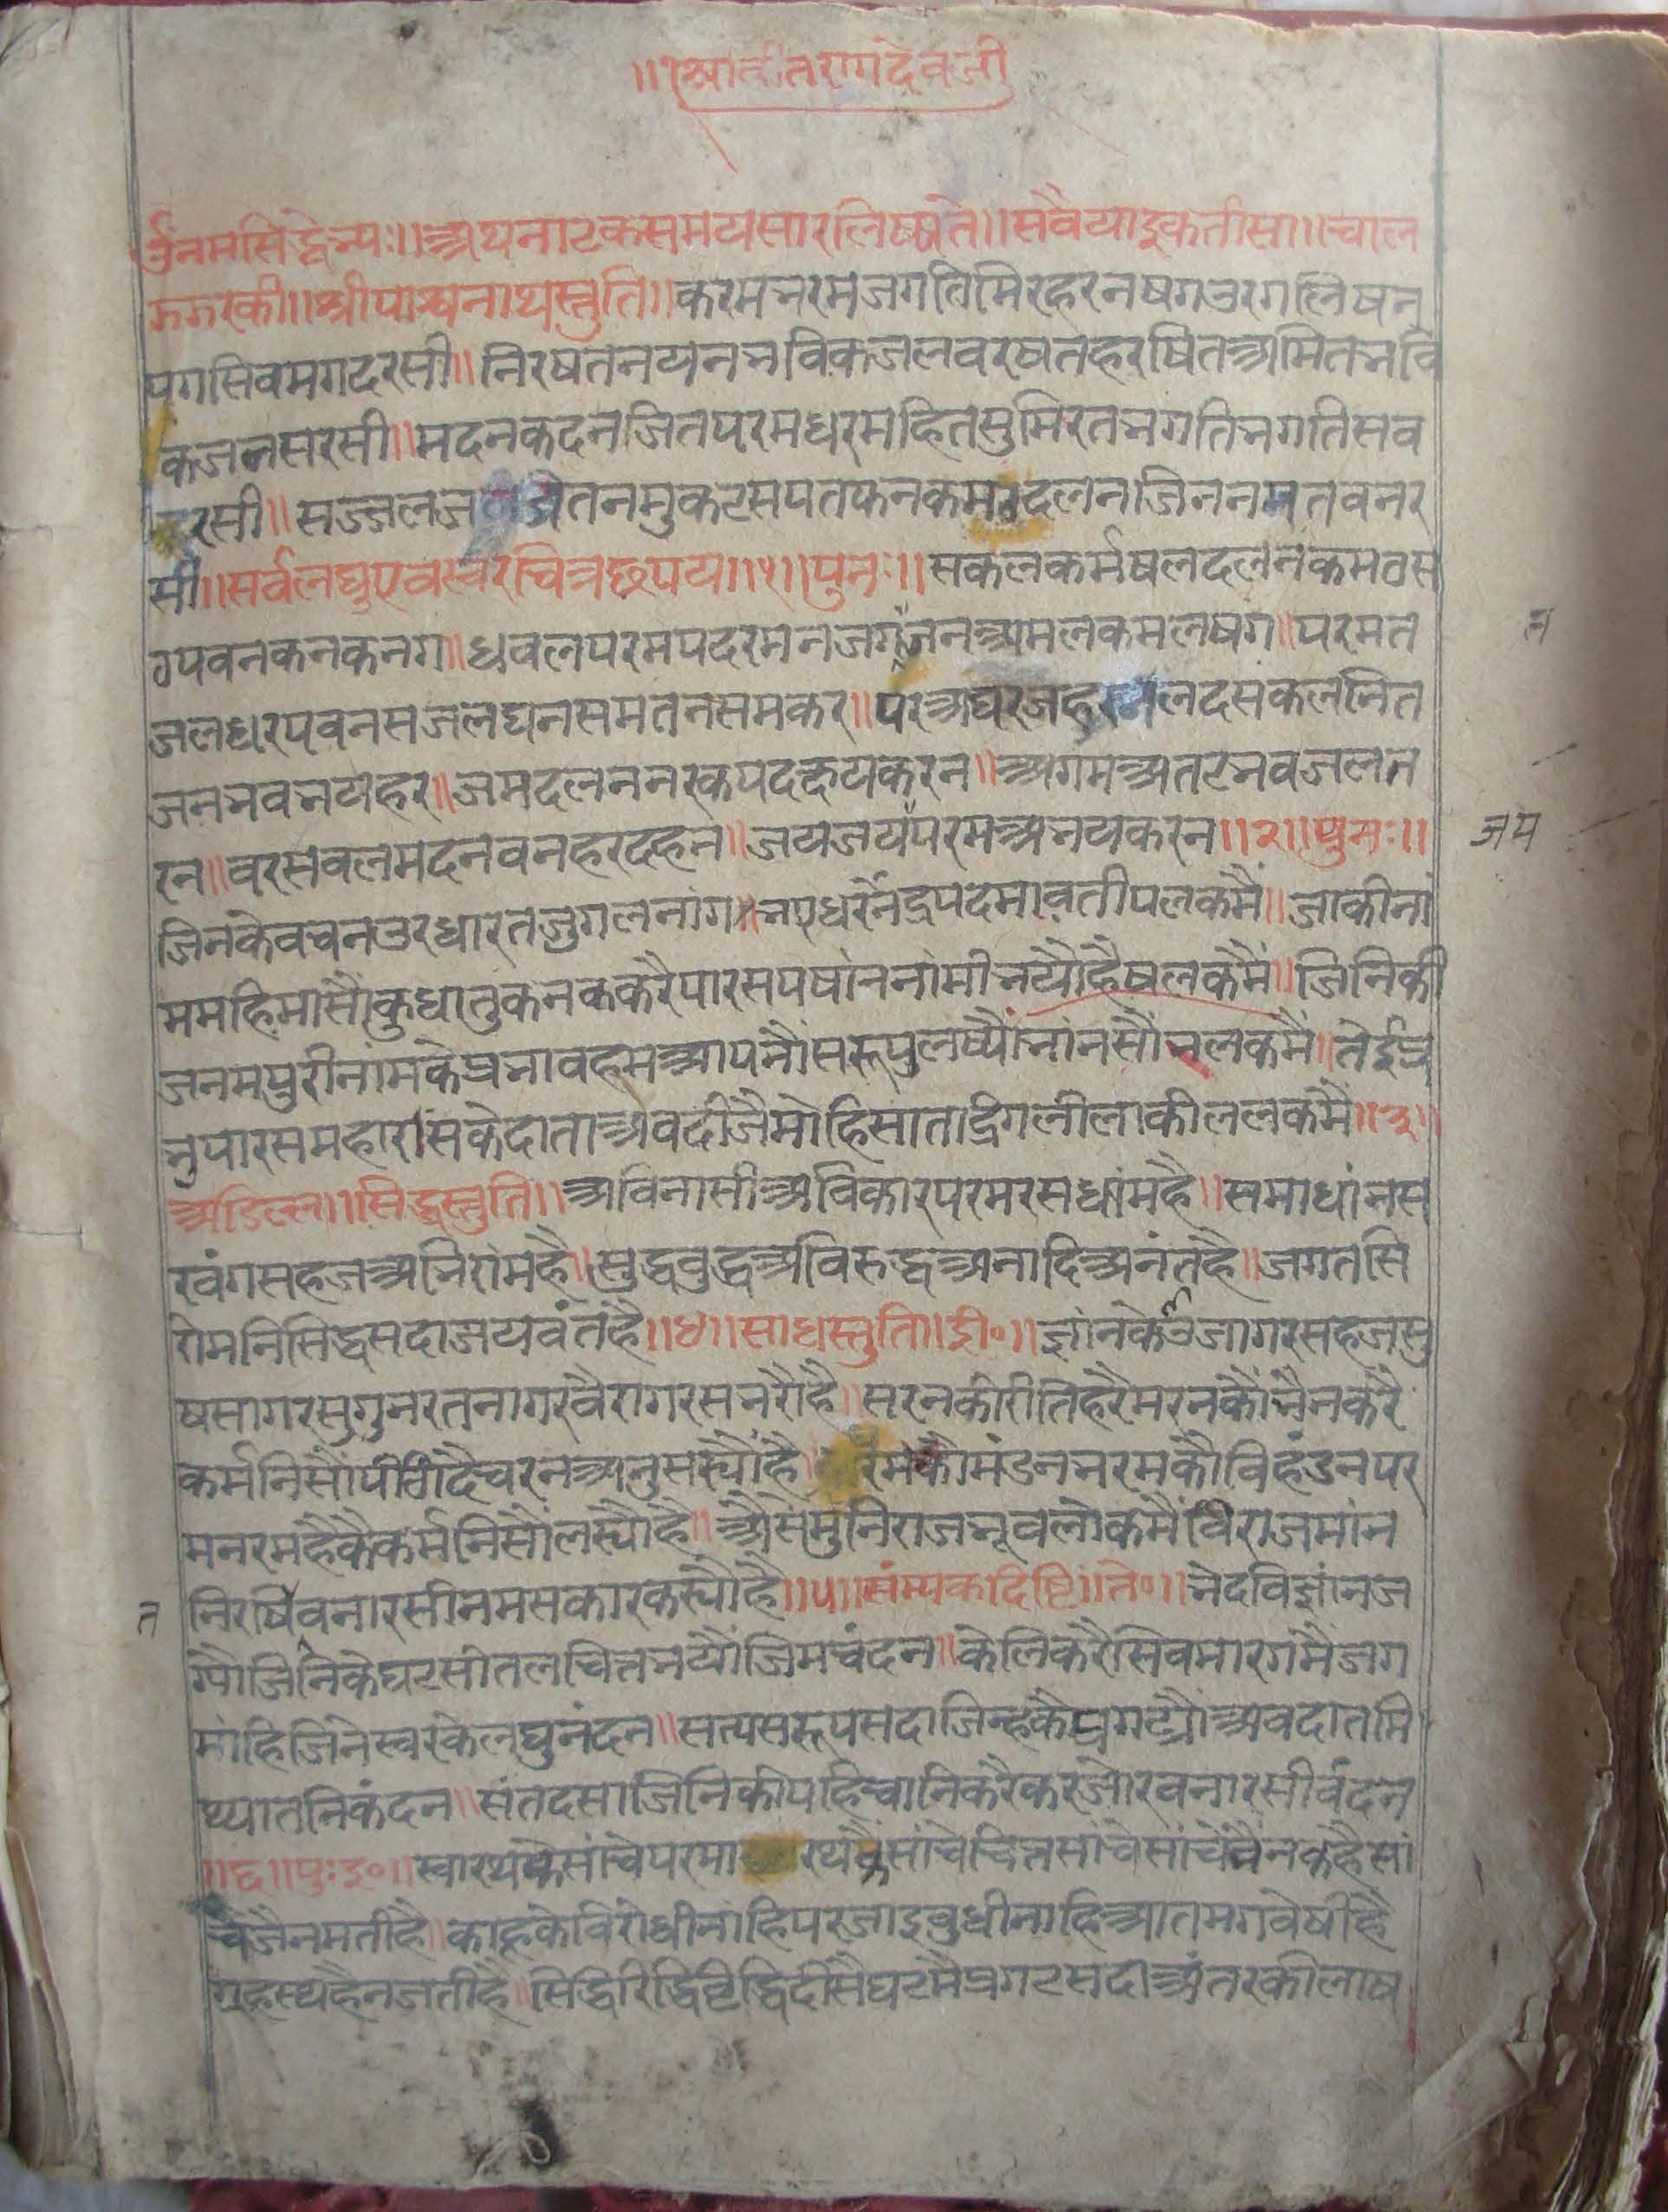 ॥श्रीवीतरागदेवजी
र्उनमसिद्धेभ्यः॥अथनाटकसमयसारलिष्यते॥सवैयाइकतीसा॥चाल
झगरकी॥श्रीपार्श्वनाथस्तुति॥करमभरमजगतिमिरहरनषगउरगलिषन
पगसिवमगदरसी॥निरषतनयनभविकजलवरषतहरषितअमितभवि
कजनसरसी॥मदनकदनजितपरमधरमहितसुमिरतभगतिभगतिसव
डरसी॥सजलजलदतनमुकटसपतफनकमठदलनजिननमतवनर
सी॥सर्वलघुएवस्वरचित्रछपय॥१॥पुनः॥सकलकर्मषलदलनकमठस
ठपवनकनकनग॥धवलपरमपदरमनजगजनअमलकमलषग॥परमत
जलधरपवनसजलघनसमतनसमकर॥परअघरजहरजलदसकलनित
जनभवभयहर॥जमदलननरकपदछयकरन॥अगमअतटभवजलत
रन॥वरसवलमदनवनहरदहन॥जयजयपरमअभयकरन॥२॥पुनः॥
जिनकेवचनउरधारतजुगलनाग॥भएधरनैंद्रपदमावतीपलकमैं॥जाकीनां
ममहिमासौंकुधातुकनककरैपारसपषांननांमीभयौहैषलकमैं॥जिनिकी
जनमपुरीनांमकेप्रभावहमआपनौंसरूपुलष्यौंभांनसौंभलकमैं॥तेईप्र
भुपारसमहारसकेदाताअवदीजैमोहिसाताद्रिगलीलाकीललकमैं॥३॥
अडिल्ल॥सिद्धस्तुति॥अविनासीअविकारपरमरसधांमहै॥समाधांनस
रवंगसहजअभिरांमहै॥सुद्धवुद्धअविरुद्धअनादिअनंतहै॥जगतसि
रोमनिसिद्धसदाजयवंतहै॥४॥साधस्तुति॥इ०॥ज्ञांनकेउजागरसहजसु
षसागरसुगुनरतनागरवैरागरसभरौहै॥सरनकीरीतिहरैमरनकौंभैनकरै
कर्मनिसौंपीठिदैचरनअनुसर्यौहै॥धरमकौमंडनभरमकौविहंडनपर
मनरमहैकैकर्मनिसौंलर्यौहै॥औसेमुनिराजभूवलोकमैंविराजमांन
निरषिवनारसीनमसकारकर्यौहै॥५॥संम्यकदिष्टि॥ते०॥भेदविज्ञांनज
ग्यौजिनिकेघटसीतलचितभयौंजिमचंदन॥केलिकरैसिवमारगमैजग
मांहिजिनेस्वरकेलघुनंदन॥सत्यसरूपसदाजिन्हकैप्रगट्यौअवदातमि
थ्यातनिकंदन॥संतदसाजिनिकीपहिचानिकरैकरजोरवनारसीवंदन
॥६॥पुःइ०॥स्वारथकेसांचेपरमारथकेसांचेचितसांचेसांचेवैंनकहैसां
चेजैनमतीहै॥काहूकेविरोधीनांहिपरजाइवुधीनाहिआतमगवेषीहै
ग्रहस्थहैनजतीहै॥सिद्धिरिद्धिव्रिद्धिदीसैघटमैप्रगटसदाअंतरकीलाष